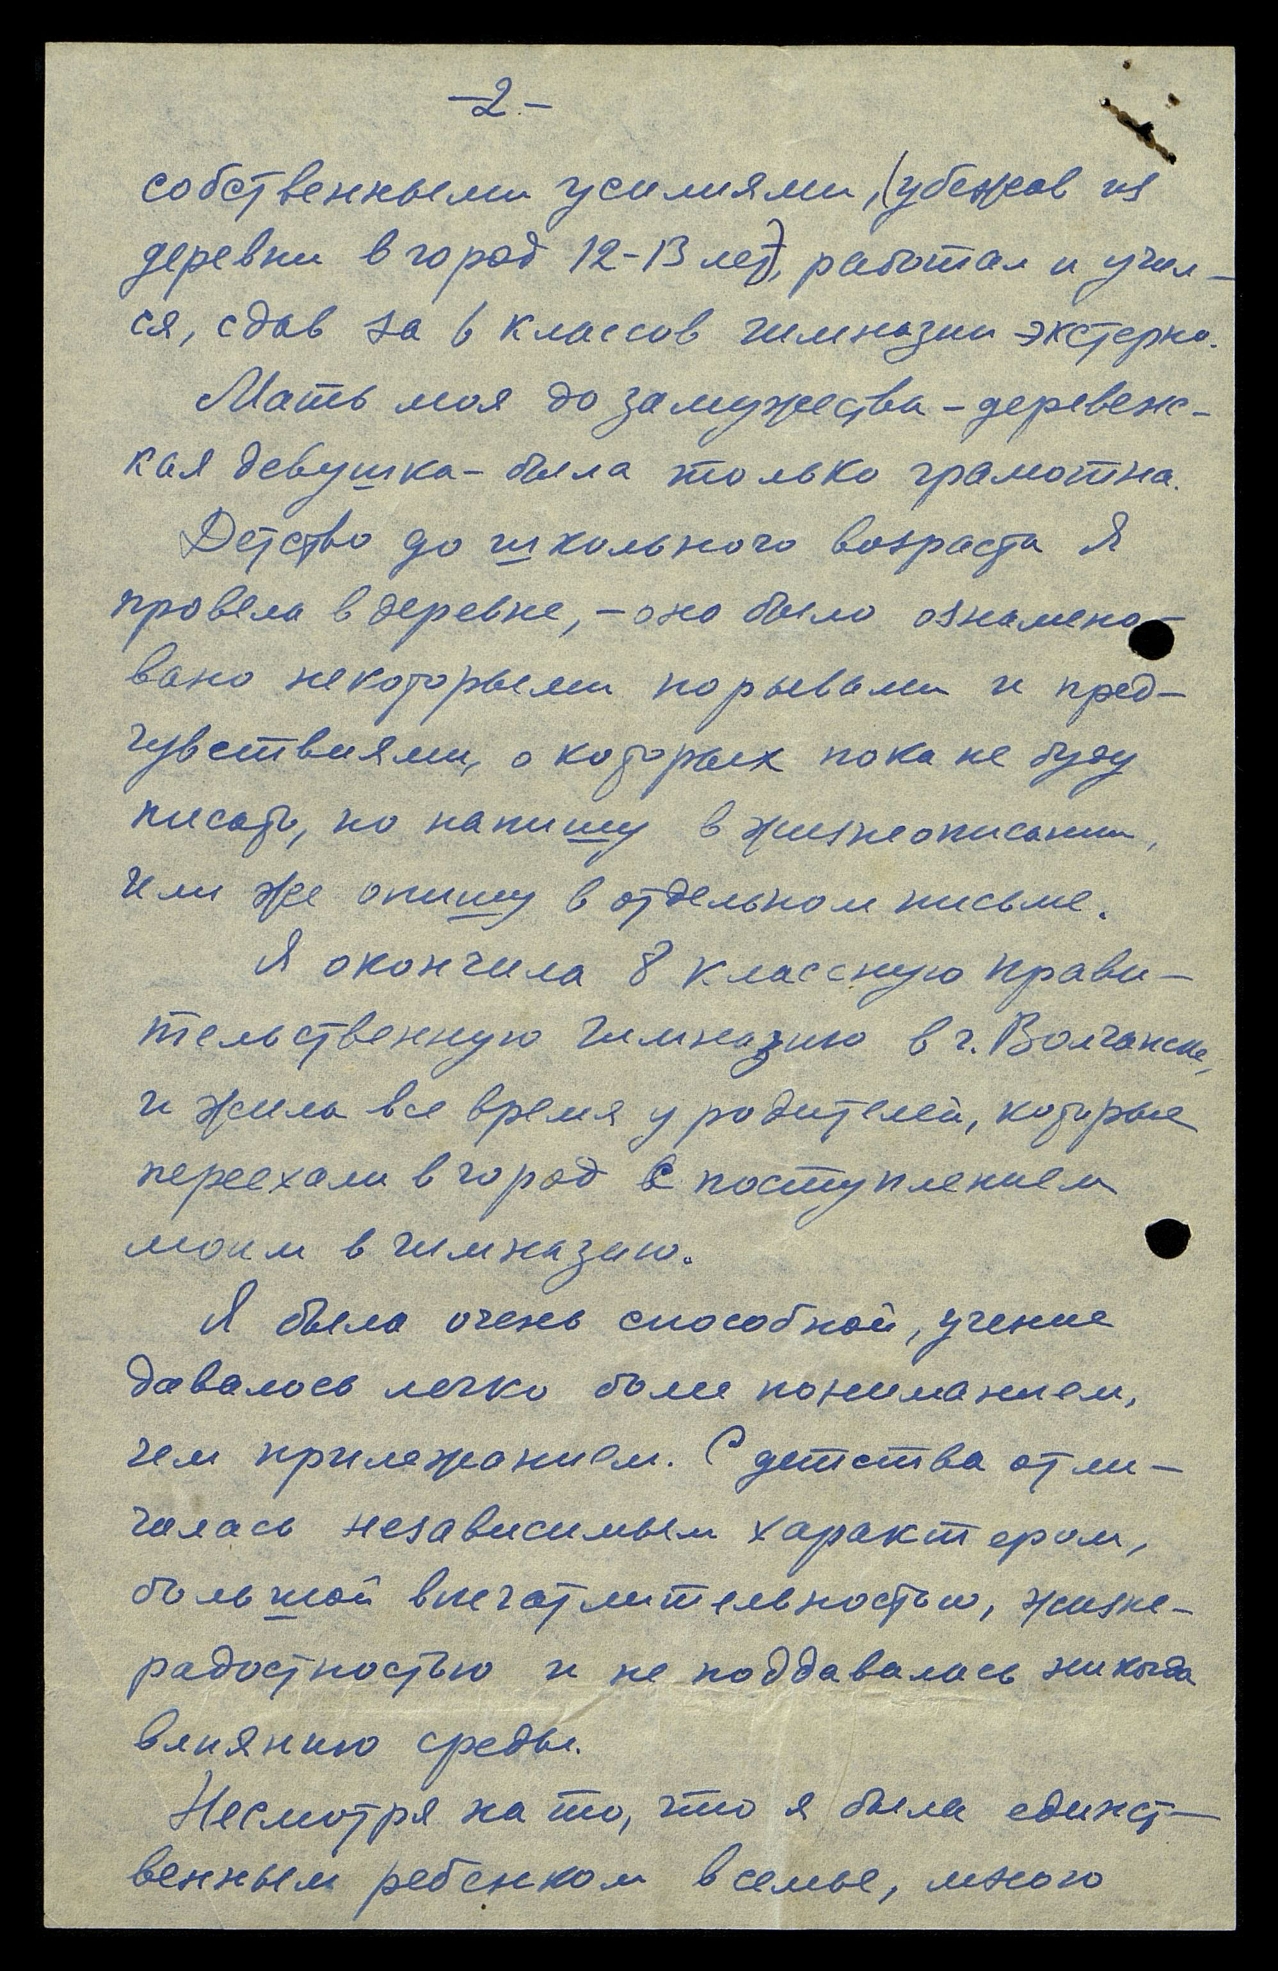 -2-
собственными усилиями, (убежав из
деревни в город 12-13 лет), работал и учил-
ся, сдав за 6 классов гимназии экстерно.
Мать моя до замужества - деревенс-
кая девушка - была только грамотна.
Детство до школьного возраста я
провела в деревне, - оно было ознамено-
вано некоторыми порывами и пред-
чувствиями, о которых пока не буду
писать, но напишу в жизнеописании,
или же опишу в отдельном письме.
Я окончила 8 классную прави-
тельственную гимназию в г. Волчанске,
и жила все время у родителей, которые
переехали в город с поступлением
моим в гимназию.
Я была очень способной, учение
давалось легко более пониманием,
чем прилежанием. С детства отли-
чалась независимым характером,
большой впечатлительностью, жизне-
радостностью и не поддавалась никогда
влиянию среды.
Несмотря на то, что я была единст-
венным ребенком в семье, много